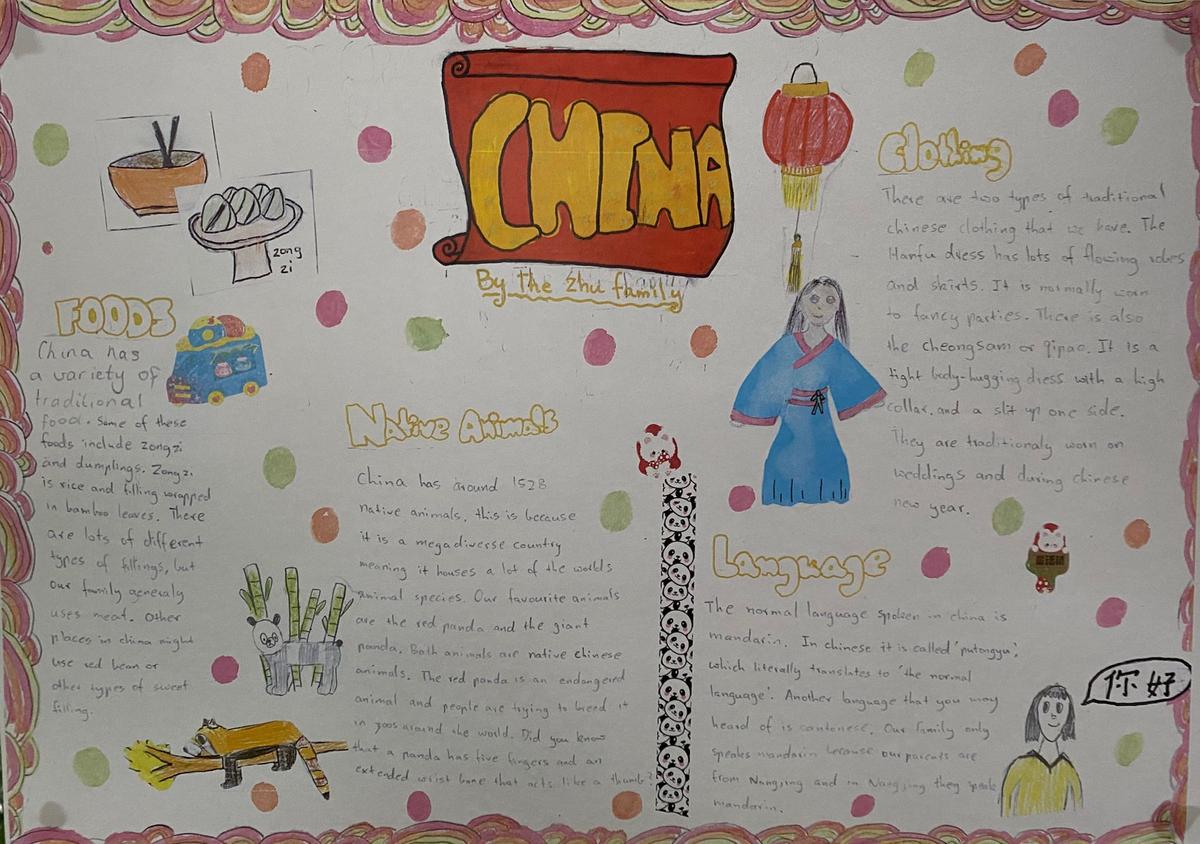 CHINA
By The Zhu family
zong
zi
FOODS
China has
a variety of
traditional
food. Some of these
foods include zongzi
and dumplings. Zongzi
is rice and filling wrapped
in bamboo leaves. There
are lots of different
types of fillings, but
our family generaly
uses meat. Other
places in china might
use red bean or
other types of sweet
filling.
Native Animals
China has around 1528
native animals. this is because
it is a megadiverse country
meaning it houses a lot of the worlds
animal species. Our favourite animals
are the red panda and the giant
panda. Both animals are native chinese
animals. The red panda is an endangered
animal and people are trying to breed it
in zoos around the world. Did you know
that a panda has five fingers and an
extended wrist bone that acts like a thumb?
Clothing
There are two types of traditional
chinese clothing that we have. The
Hanfu dress has lots of flowing robes
and skirts. It is normally worn
to fancy parties. There is also
the cheongsam or qipao. It is a
tight body-hugging dress with a high
collar. and a slit up one side.
They are traditionaly worn on
weddings and during chinese
new year.
Language
The normal language spoken in china is
mandarin. In chinese it is called 'putongyu',
which literally translates to 'the normal
language'. Another language that you may
heard of is cantonese. Our family only
speaks mandarin because our parents are
from Nangjing and in Nangjing they speak
mandarin.
你好